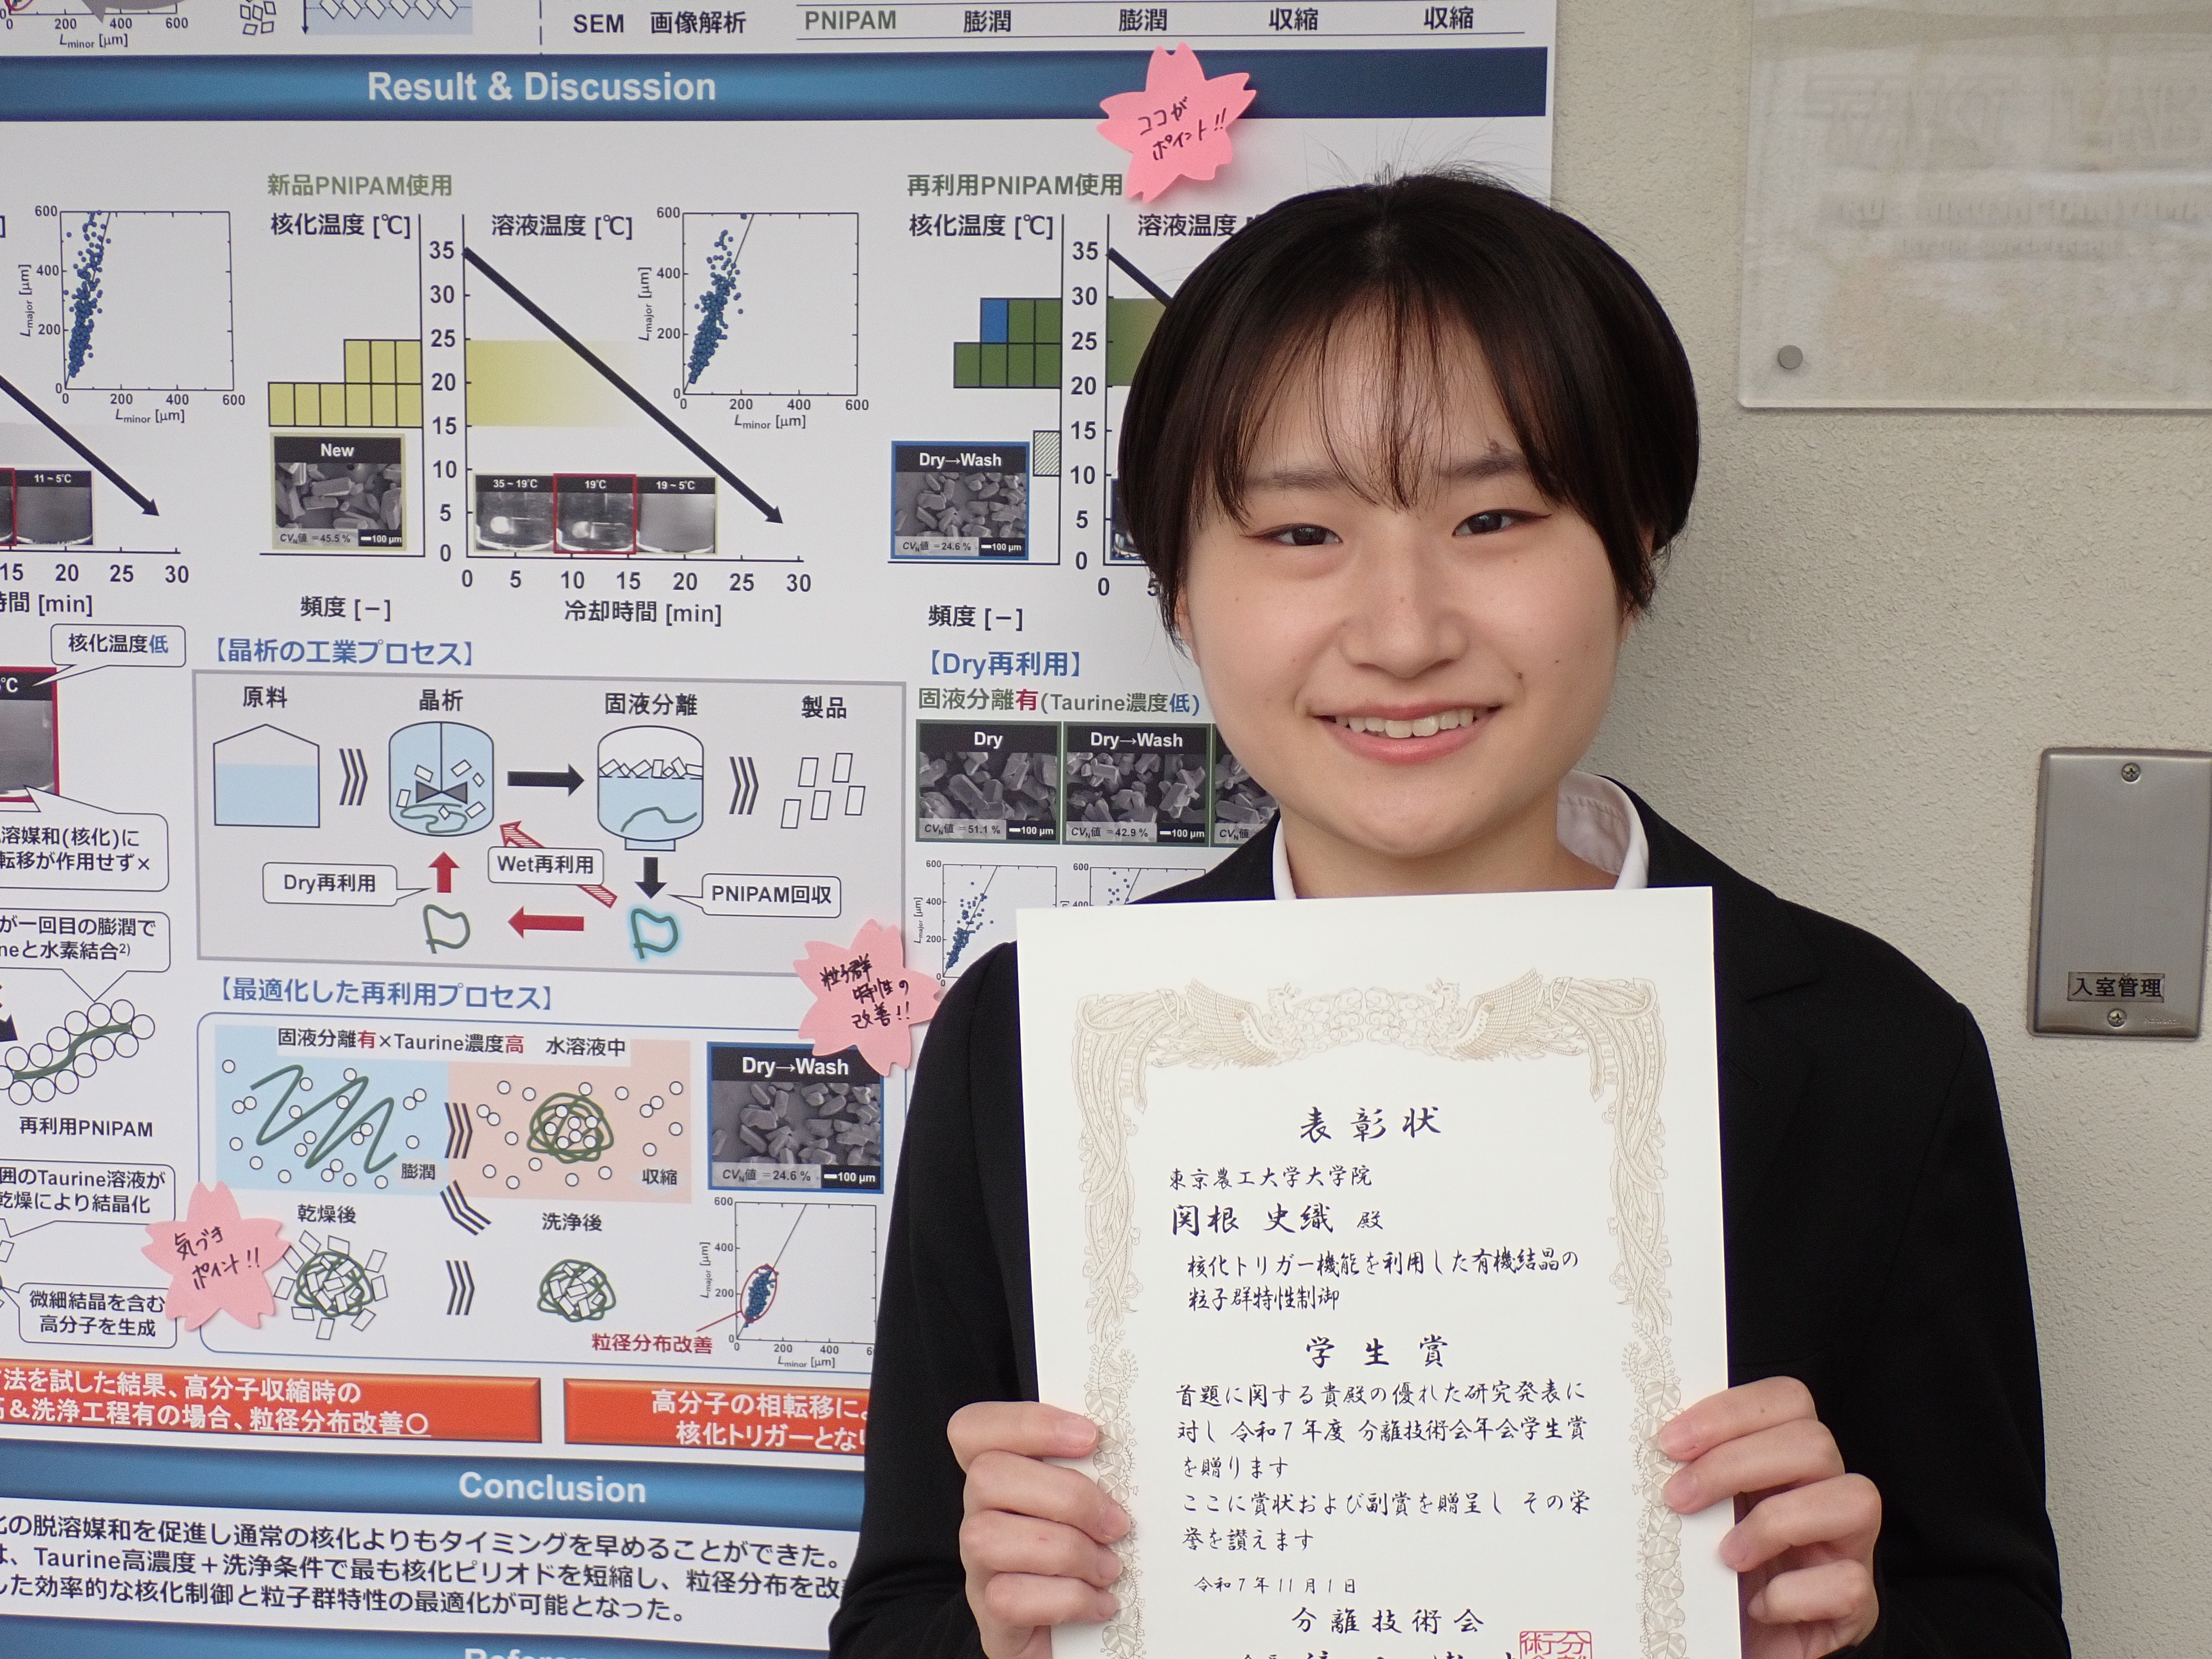 0 200 400 600
Lminor [μm]
SEM 画像解析
PNIPAM 膨潤 膨潤 収縮 収縮
Result & Discussion
ココが
ポイント!!
新品PNIPAM使用
再利用PNIPAM使用
600
400
200
0
Lmajor [μm]
0 200 400 600
Lminor [μm]
11~5℃
15 20 25 30
時間 [min]
核化温度 [℃]
溶液温度 [℃]
35
30
25
20
15
10
5
0
600
400
200
0
Lmajor [μm]
0 200 400 600
Lminor [μm]
New
CVN値 =45.5 % 100 μm
35~19℃ 19℃ 19~5℃
0 5 10 15 20 25 30
頻度 [−]
冷却時間 [min]
核化温度 [℃]
溶液温度
35
30
25
20
15
10
5
0
Dry→Wash
CVN値 =24.6 % 100 μm
0 5
頻度 [−]
核化温度低
℃
溶媒和(核化)に
転移が作用せず×
が一回目の膨潤で
neと水素結合2)
再利用PNIPAM
囲のTaurine溶液が
乾燥により結晶化
微細結晶を含む
高分子を生成
【晶析の工業プロセス】
原料 晶析 固液分離 製品
Dry再利用
Wet再利用
PNIPAM回収
【最適化した再利用プロセス】
固液分離有×Taurine濃度高 水溶液中
膨潤
収縮
乾燥後
洗浄後
気づき
ポイント!!
粒子群
特性の
改善!!
Dry→Wash
CVN値 =24.6 % 100 μm
600
400
200
0
Lmajor [μm]
0 200 400
Lminor [μm]
粒径分布改善
【Dry再利用】
固液分離有(Taurine濃度低)
Dry
CVN値 =51.1 % 100 μm
Dry→Wash
CVN値 =42.9 % 100 μm
600
400
200
0
Lmajor [μm]
600
400
法を試した結果、高分子収縮時の
&洗浄工程有の場合、粒径分布改善〇
高分子の相転移によ
核化トリガーとな
Conclusion
の脱溶媒和を促進し通常の核化よりもタイミングを早めることができた。
は、Taurine高濃度＋洗浄条件で最も核化ピリオドを短縮し、粒径分布を改
した効率的な核化制御と粒子群特性の最適化が可能となった。
入室管理
表彰状
東京農工大学大学院
関根 史織 殿
核化トリガー機能を利用した有機結晶の
粒子群特性制御
学生賞
首題に関する貴殿の優れた研究発表に
対し 令和7年度 分離技術会年会学生賞
を贈ります
ここに賞状および副賞を贈呈し その栄
誉を讃えます
令和7年11月1日
分離技術会